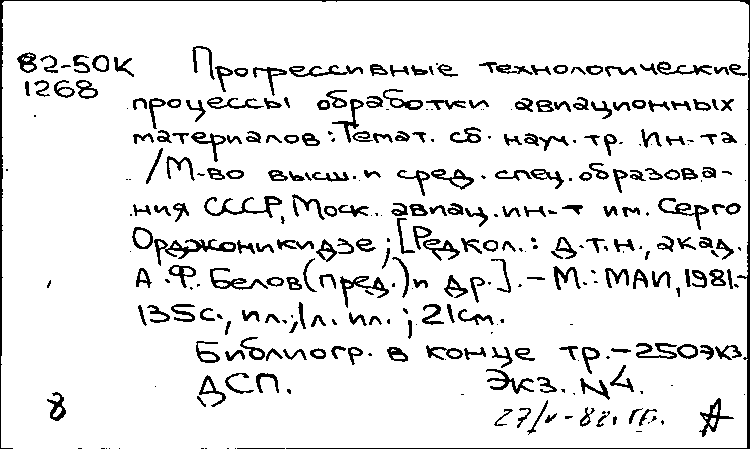 82-50К Прогрессивные технологические
1268 процессы обработки авиационных
материалов: Темат. сб. науч. тр. Ин-та
/М-во высш. и сред. спец. образова-
ния СССР, Моск. авиац. ин-т им. Серго
Орджоникидзе; [Редкол.: д.т.н., акад.
А.Ф. Белов (пред.) и др.]. - М.: МАИ, 1981.-
135с., ил.; 1л. ил.; 21см.
Библиогр. в конце тр. - 250экз.
ДСП. Экз. N4.
8